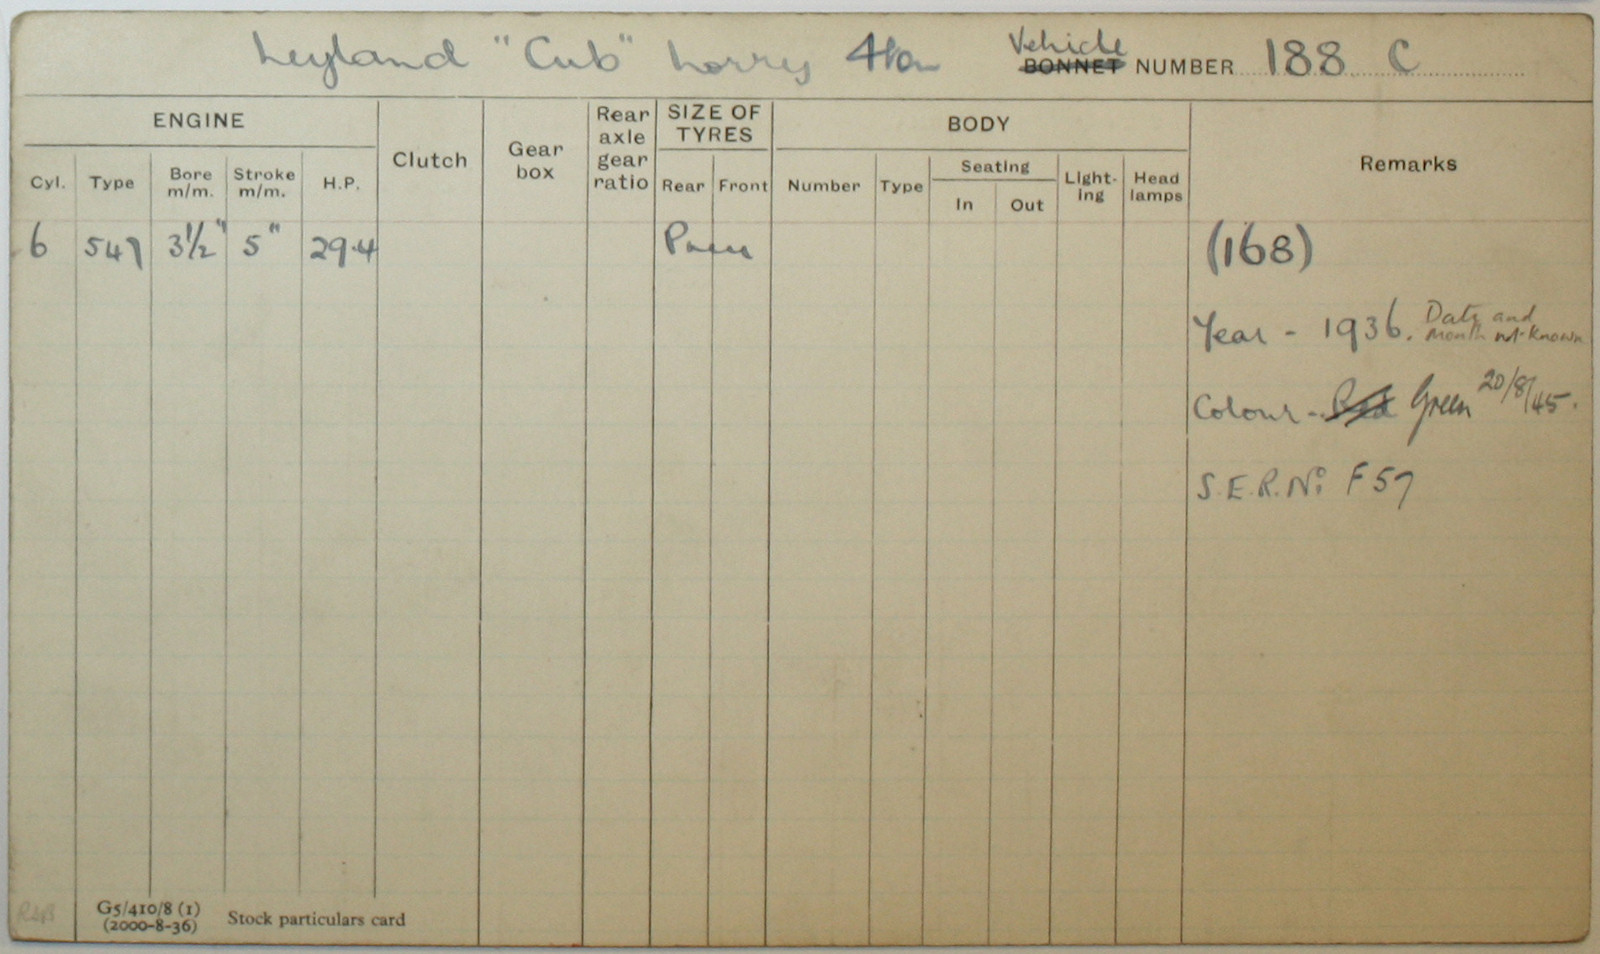 Leyland "Cub" Lorry 4ton Vehicle BONNET NUMBER 188 C
ENGINE Clutch Gear box Rear axle gear ratio SIZE OF TYRES BODY Remarks
Cyl. Type Bore m/m. Stroke m/m. H.P. Rear Front Number Type Seating In Out Light-ing Head lamps
6 547 3½" 5" 29.4 (168)
Year - 1936. Date and month not known
Colour - Red Green 20/8/45.
S.E.R. No F57
G5/410/8 (1)
(2000-8-36) Stock particulars card